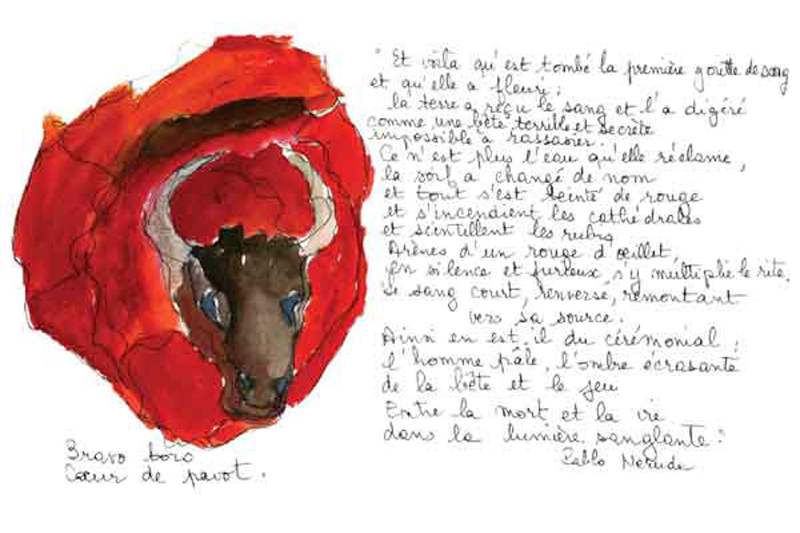 "Et voilà qu'est tombé la première goutte de sang
et qu'elle a fleuri :
la terre a reçu le sang et l'a digéré
comme une bête terrible et secrète
impossible à rassasier.
Ce n'est plus l'eau qu'elle réclame,
la soif a changé de nom
et tout s'est teinté de rouge
et s'incendient les cathédrales
et scintillent les rubis
Arènes d'un rouge d'œillet,
En silence et furieux, s'y multiplie le rite.
Le sang court, renverse, remontant
vers sa source.
Ainsi en est-il du cérémonial :
l'homme pâle, l'ombre écrasante
de la bête et le jeu
Entre la mort et la vie
dans la lumière sanglante"
Pablo Neruda
Bravo toro
Cœur de pavot.